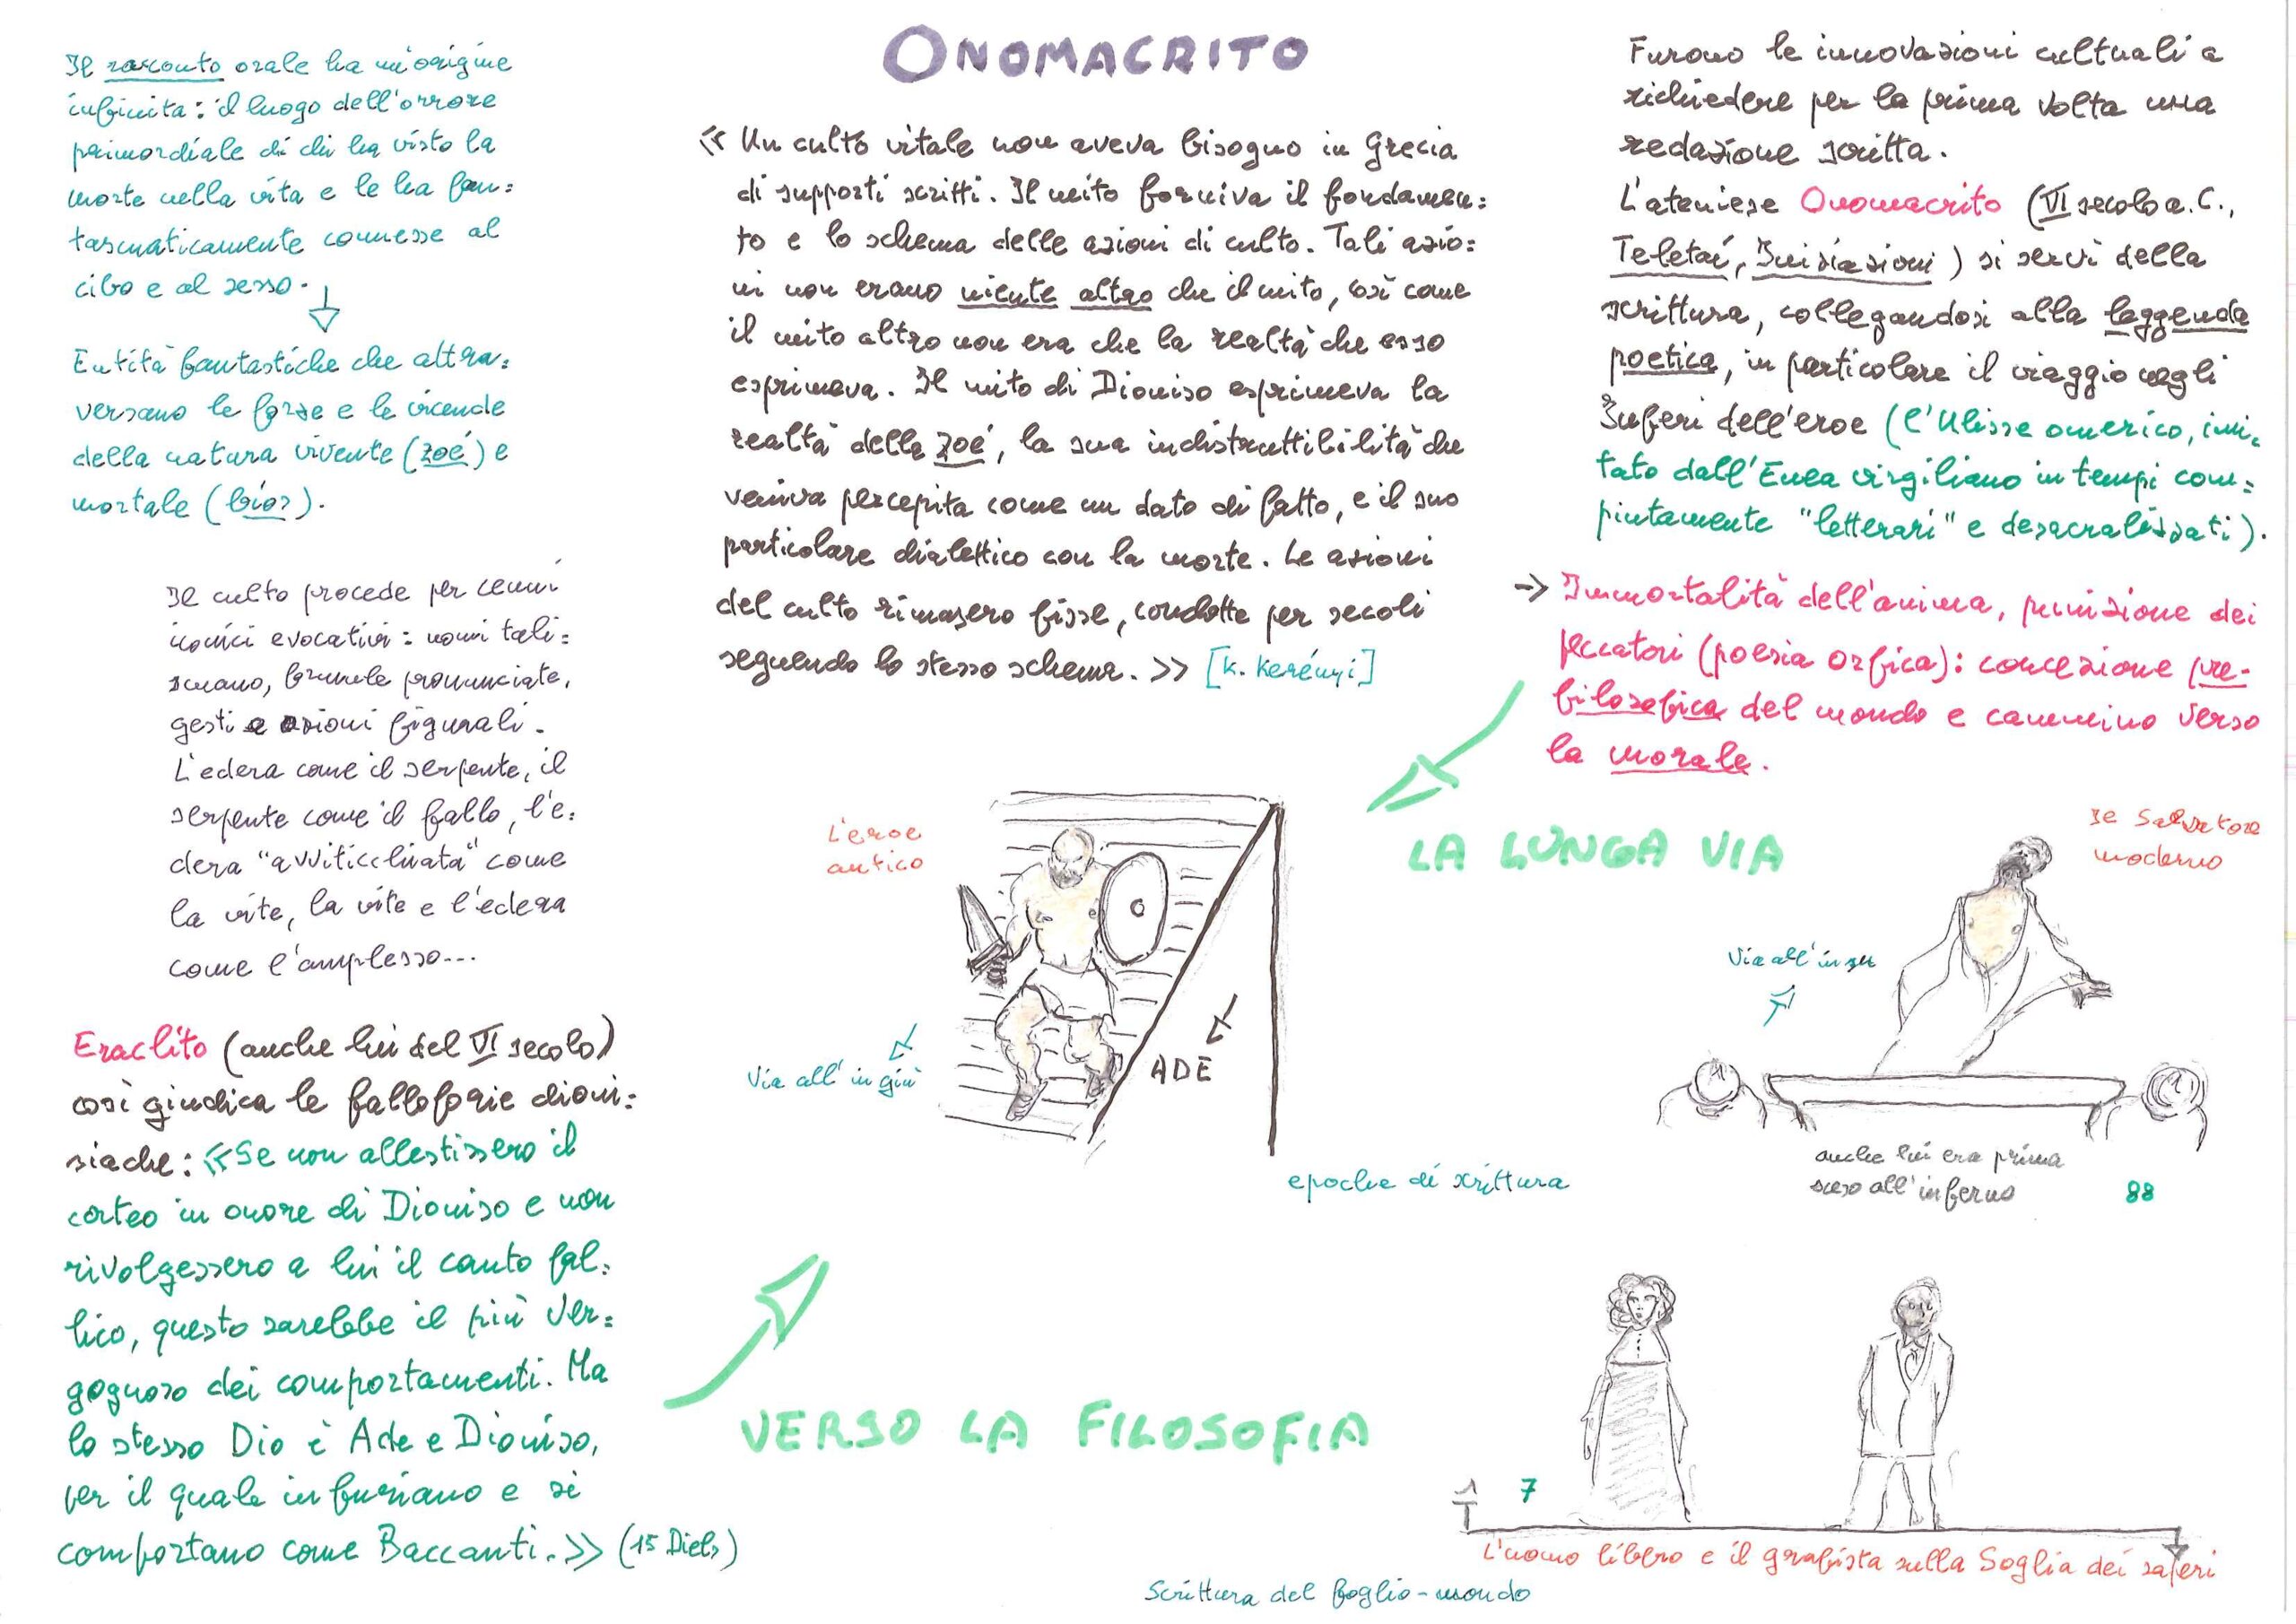 ONOMACRITO
Il racconto orale ha un'origine
infinita: il luogo dell'orrore
primordiale di chi ha visto la
morte nella vita e le ha fan=
tasmaticamente connesse al
cibo e al sesso.
Entità fantastiche che attra=
versano le forze e le vicende
della natura vivente (zoé) e
mortale (bios).
Il culto procede per cenni
iconici evocativi: nomi tali=
smano, formule pronunciate,
gesti e azioni figurali.
L'edera come il serpente, il
serpente come il fallo, l'e=
dera "avviticchiata" come
la vite, la vite e l'edera
come l'amplesso...
Eraclito (anche lui del VI secolo)
così giudica le falloforie dioni=
siache: «Se non allestissero il
corteo in onore di Dioniso e non
rivolgessero a lui il canto fal=
lico, questo sarebbe il più ver=
gognoso dei comportamenti. Ma
lo stesso Dio è Ade e Dioniso,
per il quale infuriano e si
comportano come Baccanti.» (15 Diels)
« Un culto vitale non aveva bisogno in Grecia
di supporti scritti. Il mito forniva il fondamen=
to e lo schema delle azioni di culto. Tali azio=
ni non erano niente altro che il mito, così come
il mito altro non era che la realtà che esso
esprimeva. Il mito di Dioniso esprimeva la
realtà della zoé, la sua indistruttibilità che
veniva percepita come un dato di fatto, e il suo
particolare dialettico con la morte. Le azioni
del culto rimasero fisse, condotte per secoli
seguendo lo stesso schema. » [K. Kerényi]
Furono le innovazioni cultuali a
richiedere per la prima volta una
redazione scritta.
L'ateniese Onomacrito (VI secolo a.C.,
Teletaí, Iniziazioni) si servì della
scrittura, collegandosi alla leggenda
poetica, in particolare il viaggio negli
Inferi dell'eroe (l'Ulisse omerico, imi=
tato dall'Enea virgiliano in tempi com=
piutamente "letterari" e desacralizzati).
→ Immortalità dell'anima, punizione dei
peccatori (poesia orfica): concezione pre-
filosofica del mondo e cammino verso
la morale.
LA LUNGA VIA
L'eroe
antico
Via all'in giù
ADE
Il Salvatore
moderno
Via all'in su
anche lui era prima
sceso all'inferno
88
epoche di scrittura
VERSO LA FILOSOFIA
7
L'uomo libero e il grafista sulla Soglia dei saperi
Scrittura del foglio-mondo